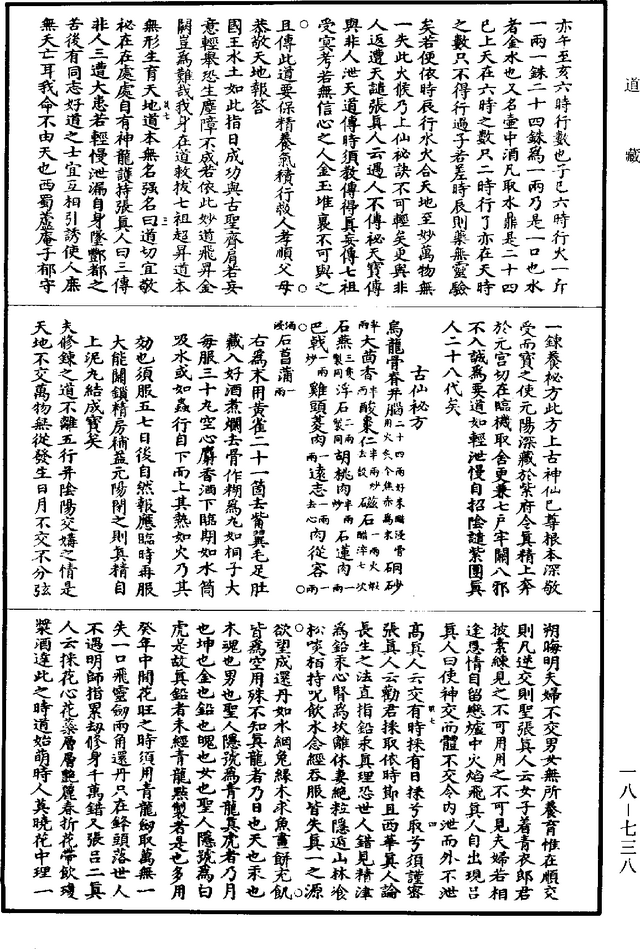 道藏
亦午至亥六時行數也子巳六時行火一斤
一兩一銖二十四銖爲一兩乃是一口也水
者金水也又名壺中酒凡取水鼎是二十四
巳上天在六時之數只二時行了亦在天時
之數只不得行過子若差時辰則藥無靈驗
矣若便依時辰行水火合天地至妙萬物無
一失此火候乃上仙祕訣不可輕矣更與非
人返遭天譴張真人云遇人不傳祕天寶傳
與非人泄天道傳時須教傳得真妄傳七祖
受冥考若無信心之人金玉堆裏不可與之
且傳此道要保精養氣積行救人孝順父母
恭敬天地報荅
國王水土如此指日成功與古聖齊肩若妄
意輕舉恐生塵障不成若依此妙道飛昇金
闕豈爲難哉我身在道救拔七祖超昇道本
無形生育天地道本無名强名曰道切宜敬
祕在在處處自有神龍護持張真人曰三傳
非人三遭大患若輕慢泄漏自身墮酆都之
苦後有同志好道之士宜互相引誘使人庶
無夭亡耳我命不由天也西蜀蘆庵子郁守
一錬養祕方此方上古神仙巳尊根本深敬
受而寶之使元陽深藏於紫府令真精上奔
於元宮切在臨機取舍更兼七戶牢關八邪
不入誠爲要道如輕泄慢自招陰譴紫團真
人二十八代矣
古仙祕方
烏龍脊骨并腦二十四兩好米醋浸骨用火炙令焦赤爲末硇砂
半兩大茴香半兩酸棗仁一兩去殻半兩炒磁石一兩火煅醋淬七次
石燕三隻製同浮石二兩製同胡桃肉半兩炒石蓮肉一兩
巴戟一兩炒雞頭菱肉一兩遠志一兩去心肉從容一兩
酒浸石菖蒲一兩
右爲末用黃雀二十一箇去觜翼毛足肚
藏入好酒煮爛去骨作糊爲丸如桐子大
每服三十丸空心麝香酒下臨期如水筒
吸水或如蟲行自下而上其熱如火乃其
効也須服五七日後自然報應臨時再服
大能關鎖精房補益元陽閉之則真精自
上泥丸結成寶矣
夫修錬之道不離五行并陰陽交媾之情是
天地不交萬物無從發生日月不交不分弦
朔晦明夫婦不交男女無所養育惟在順交
則凡逆交則聖張真人云女子着青衣郎君
披素練見之不可用用之不可見夫婦若相
逢恩情自留戀爐中火焰飛真人自出現吕
真人曰使神交而體不交令内泄而外不泄
高真人云交有時採有日採兮取兮須謹密
張真人云勸君採取依時節且西華真人論
長生之法直指鉛汞真理恐世人錯見精津
爲鉛汞心腎爲坎離休妻絶粒隱遁山林飡
松啖柏持呪飲水念經吞服皆失真一之源
欲望成還丹如水網兔緣木求魚畫餅充飢
皆爲空用殊不知真龍者乃日也天也汞也
木魂也男也聖人隱號爲青龍真虎者乃月
也坤也金也鉛也魄也女也聖人隱號爲白
虎是故真鉛者未經青龍點製者是也多用
癸年中開花旺之時須用青龍劒取萬無一
失一口飛靈劒兩角還丹只在鋒頭落世人
不遇明師指累劫修身千萬錯又張吕二真
人云採花心花蘂層層艷麗春折花帶飲瓊
漿酒逢此之時道始萌時人莫曉花中理一
一八－七三八